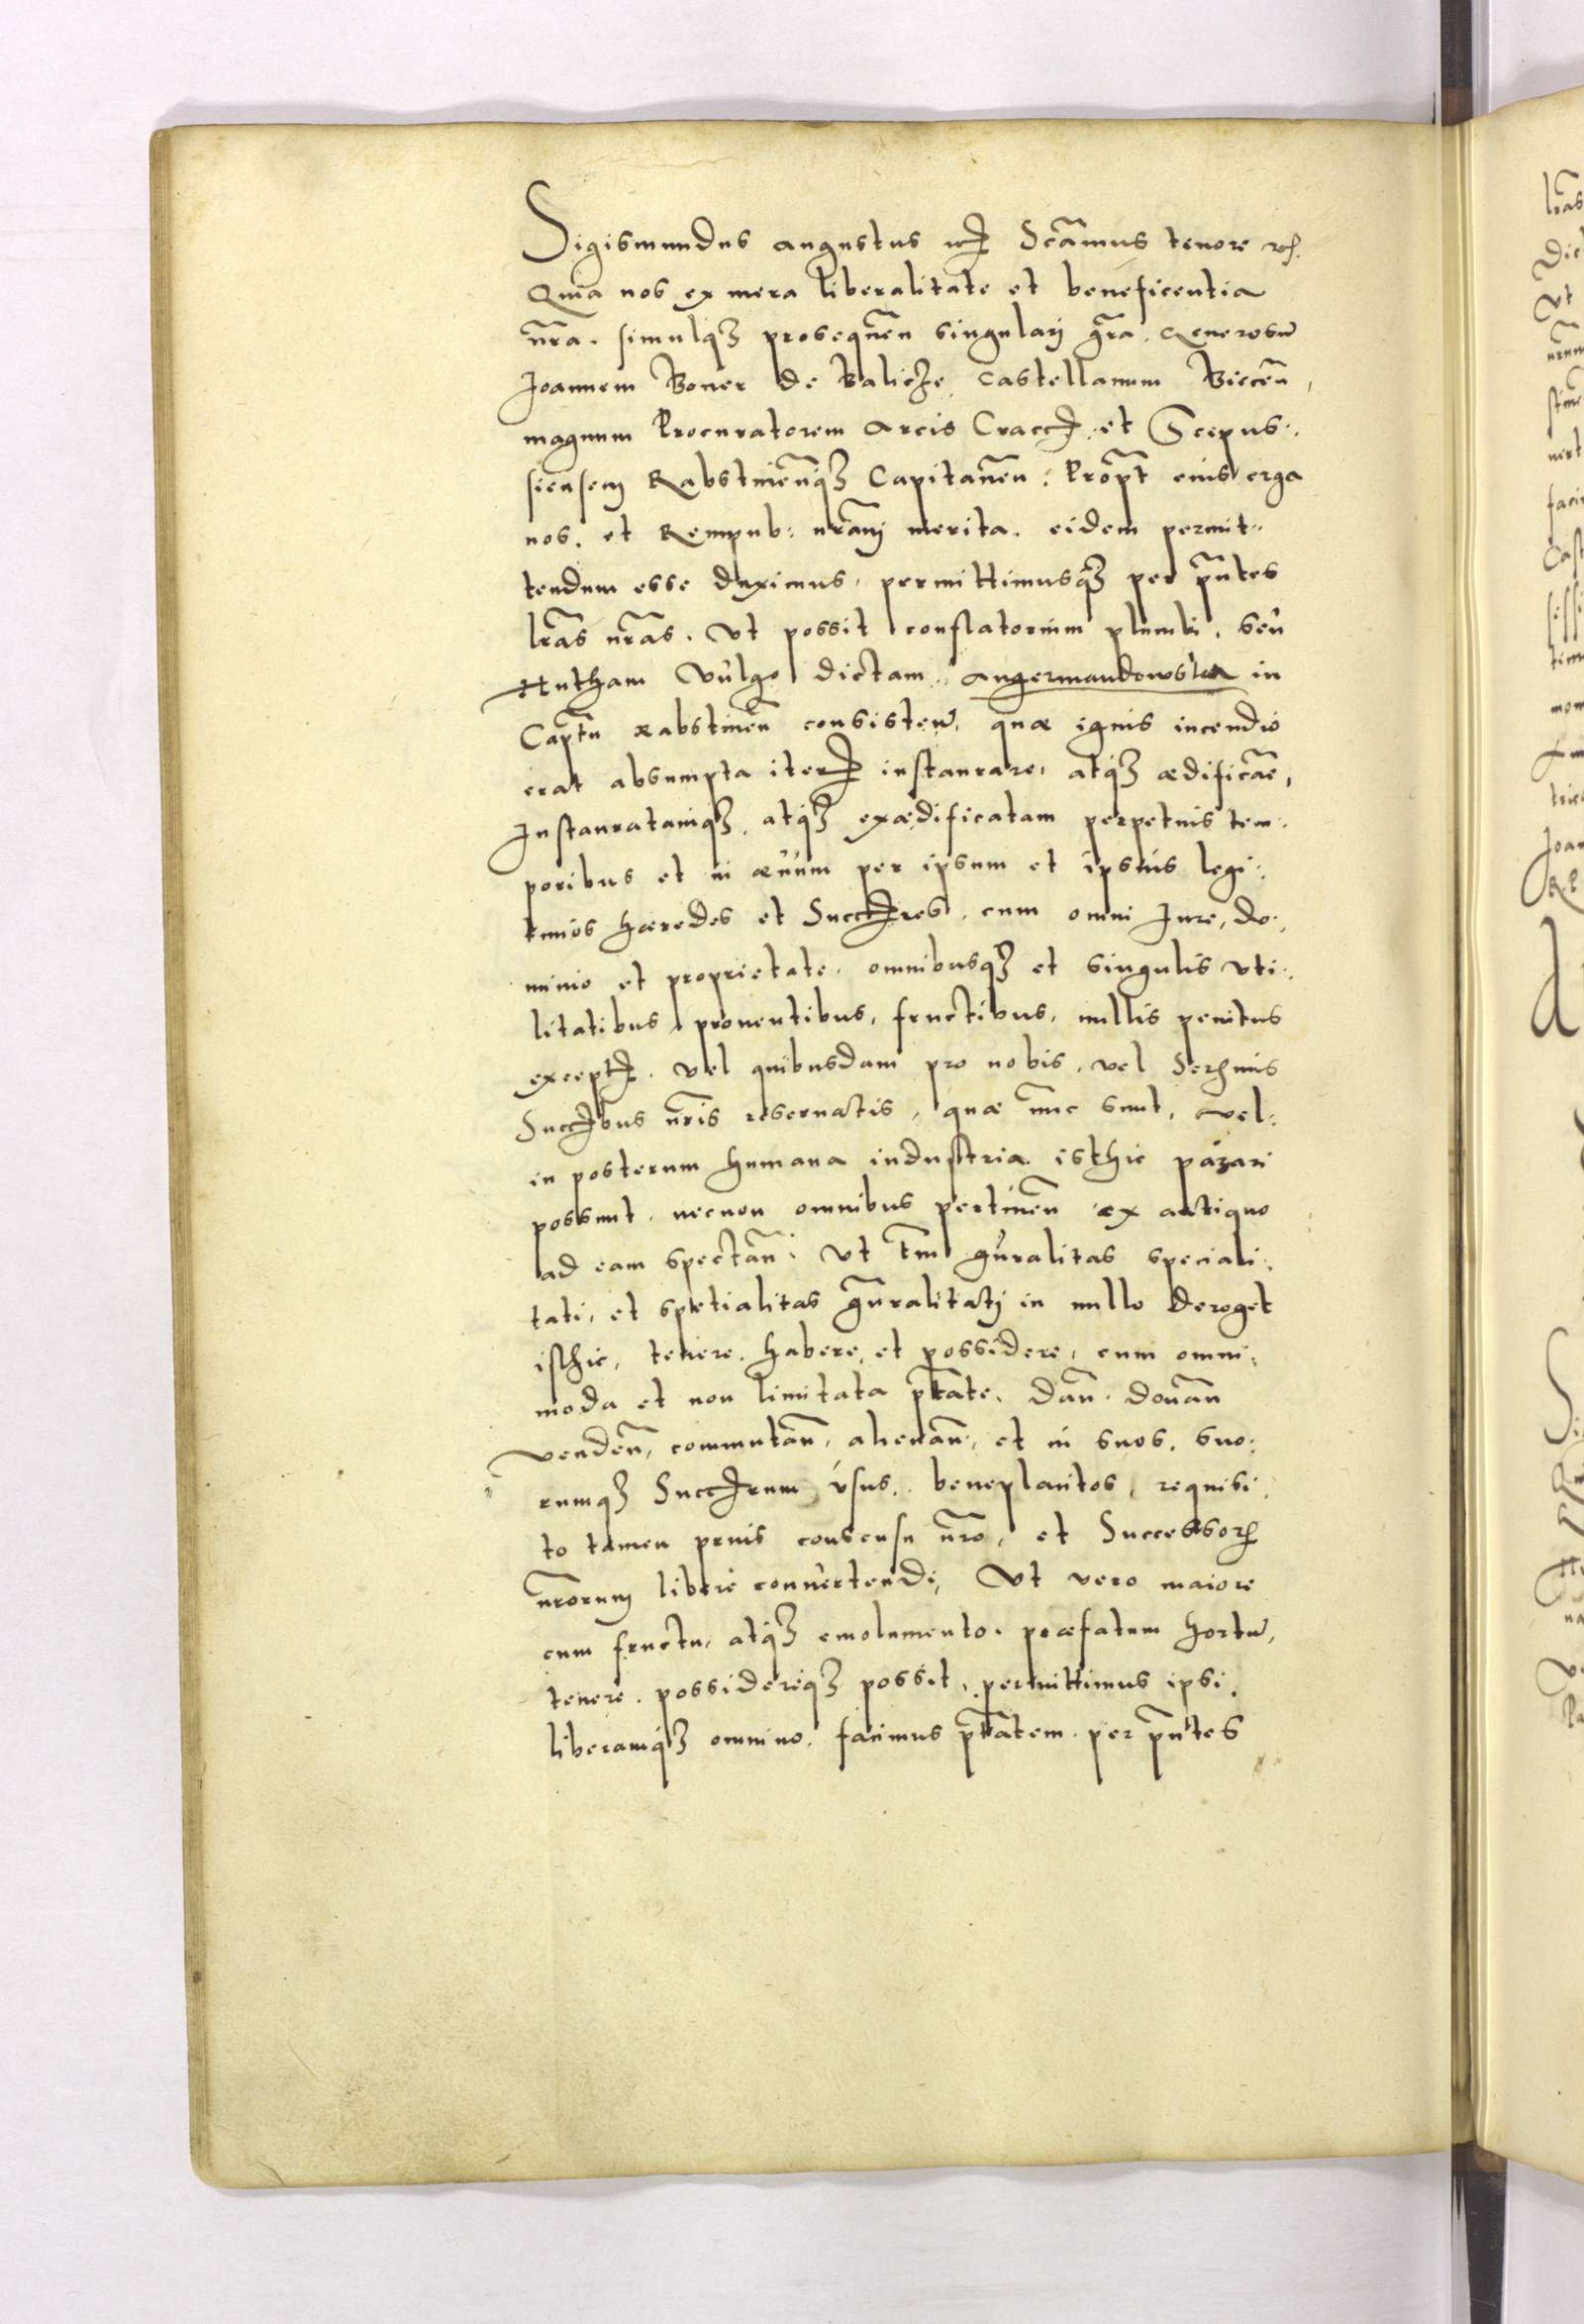 Sigismundus augustus etc Scãmus tenore etc.
Quia nos ex mera liberalitate et beneficentia
nr̃a. simulq₃ prosequeñ singulari gr̃a. Generosũ
Joannem Boner de Balicze Castellanum Bieceñ,
magnum Procuratorem Arcis Cracc. et Scepus..
siensem Rabstineñq₃ Capitaneũ: Propt̃ eius erga
nos. et Rempub: nr̃am merita. eidem permit..
tendum esse duximus, permittimusq₃ per p̃ntes
lr̃as nr̃as. Ut possit conflatorium plumbi, seu
Hutham Vulgo dictam, Angermandowska in
Captũ Rabstineñ consisteñ, quæ ignis incendio
erat absumpta iter instaurare, atq₃ ædificãre,
Instauratamq₃, atq₃ exædificatam perpetuis tem..
poribus et in æuum per ipsum et ipsius legi..
timos hæredes et Succres, cum omni Jure, do.
minio et proprietate, omnibusq₃ et singulis uti..
litatibus, prouentibus, fructibus, nullis penitus
except. vel quibusdam pro nobis, vel Serñmis
Succbus nr̃is reseruatis, quæ nũc sunt, vel.
in posterum humana industria isthic parari
possunt, necnon omnibus pertineñ ex antiquo
ad eam spectañ. Ut tñ gñralitas speciali.
tati, et spetialitas gñralitati in nullo deroget
isthic, tenere, habere, et possidere, cum omni.
moda et non limitata ptãte. dañ. donañ
vendeñ, commutañ, alienañ, et in suos, suo.
rumq₃ Succrum usus, beneplacitos, requisi.
to tamen prius consensu nr̃o, et Successorũ
nr̃orum libere conuertendi, Ut vero maiore
cum fructu, atq₃ emolumento. præfatum hortũ,
tenere, possidereq₃ possit, permittimus ipsi,
liberamq₃ omnino, facimus ptãtem. per p̃ntes